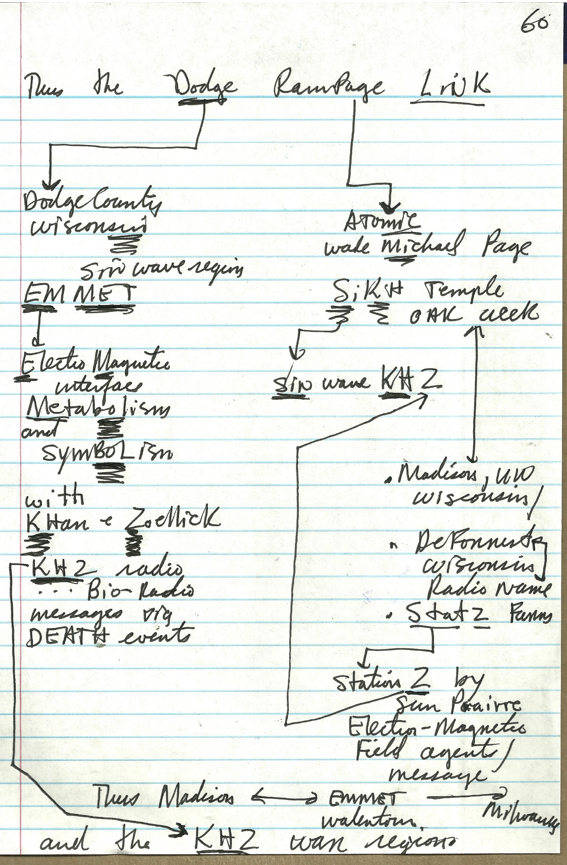 60
Thus the Dodge RamPage LiNK
Dodge County
wisconsin
Sin wave region
EMMET
Electro Magnetic
interface
Metabolism
and
SYMBOLism
with
KHan - e Zoellick
KHZ radio
... Bio-Radio
messages via
DEATH events
Atomic
wade Michael Page
SiKH Temple
OAK creek
Sin wave KHZ
. Madison, UW
wisconsin/
. DeForrest
wisconsin
Radio Name
. StatZ Farms
Station Z by
Sun Prairre
Electro-Magnetic
Field agents/
message
Thus Madison EMMET Milwauky
and the KHZ wave regions